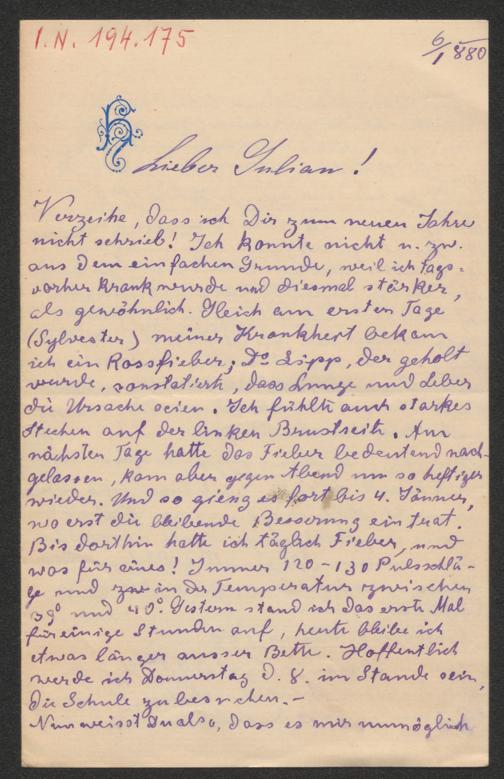 I.N. 194.175
6/1 880
Lieber Julian!
Verzeihe, dass ich Dir zum neuen Jahre
nicht schrieb! Ich konnte nicht u. zw.
aus dem einfachen Grunde, weil ich tags-
vorher krank wurde und diesmal stärker,
als gewöhnlich. Gleich am ersten Tage
(Sylvester) meiner Krankheit bekam
ich ein Rossfieber; Dr Lipp, der geholt
wurde, constatirte, dass Lunge und Leber
die Ursache seien. Ich fühlte auch starkes
Stechen auf der linken Brustseite. Am
nächsten Tage hatte das Fieber bedeutend nach-
gelassen, kam aber gegen Abend um so heftiger
wieder. Und so gieng es fort bis 4. Jänner,
wo erst die bleibende Besserung eintrat.
Bis dorthin hatte ich täglich Fieber, und
was für eines! Immer 120-130 Pulsschlä-
ge und zw in der Temperatur zwischen
39° und 40°. Gestern stand ich das erste Mal
für einige Stunden auf, heute bleibe ich
etwas länger ausser Bette. Hoffentlich
werde ich Donnerstag d. 8. im Stande sein,
die Schule zu besuchen.-
Nun weisst Du also, dass es mir unmöglich